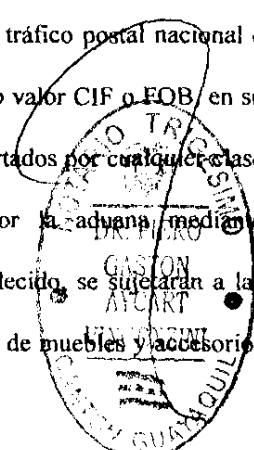 tráfico postal nacional
valor CIF o FOB, en su
rtados por cualquier clase
or la aduana mediant
lecido, se sujetarán a la
de muebles y accesorio
NOTARIO TRIGESIMO
DR. PIERO
GASTON
AYCART
VINCENZINI
CANTON GUAYAQUIL